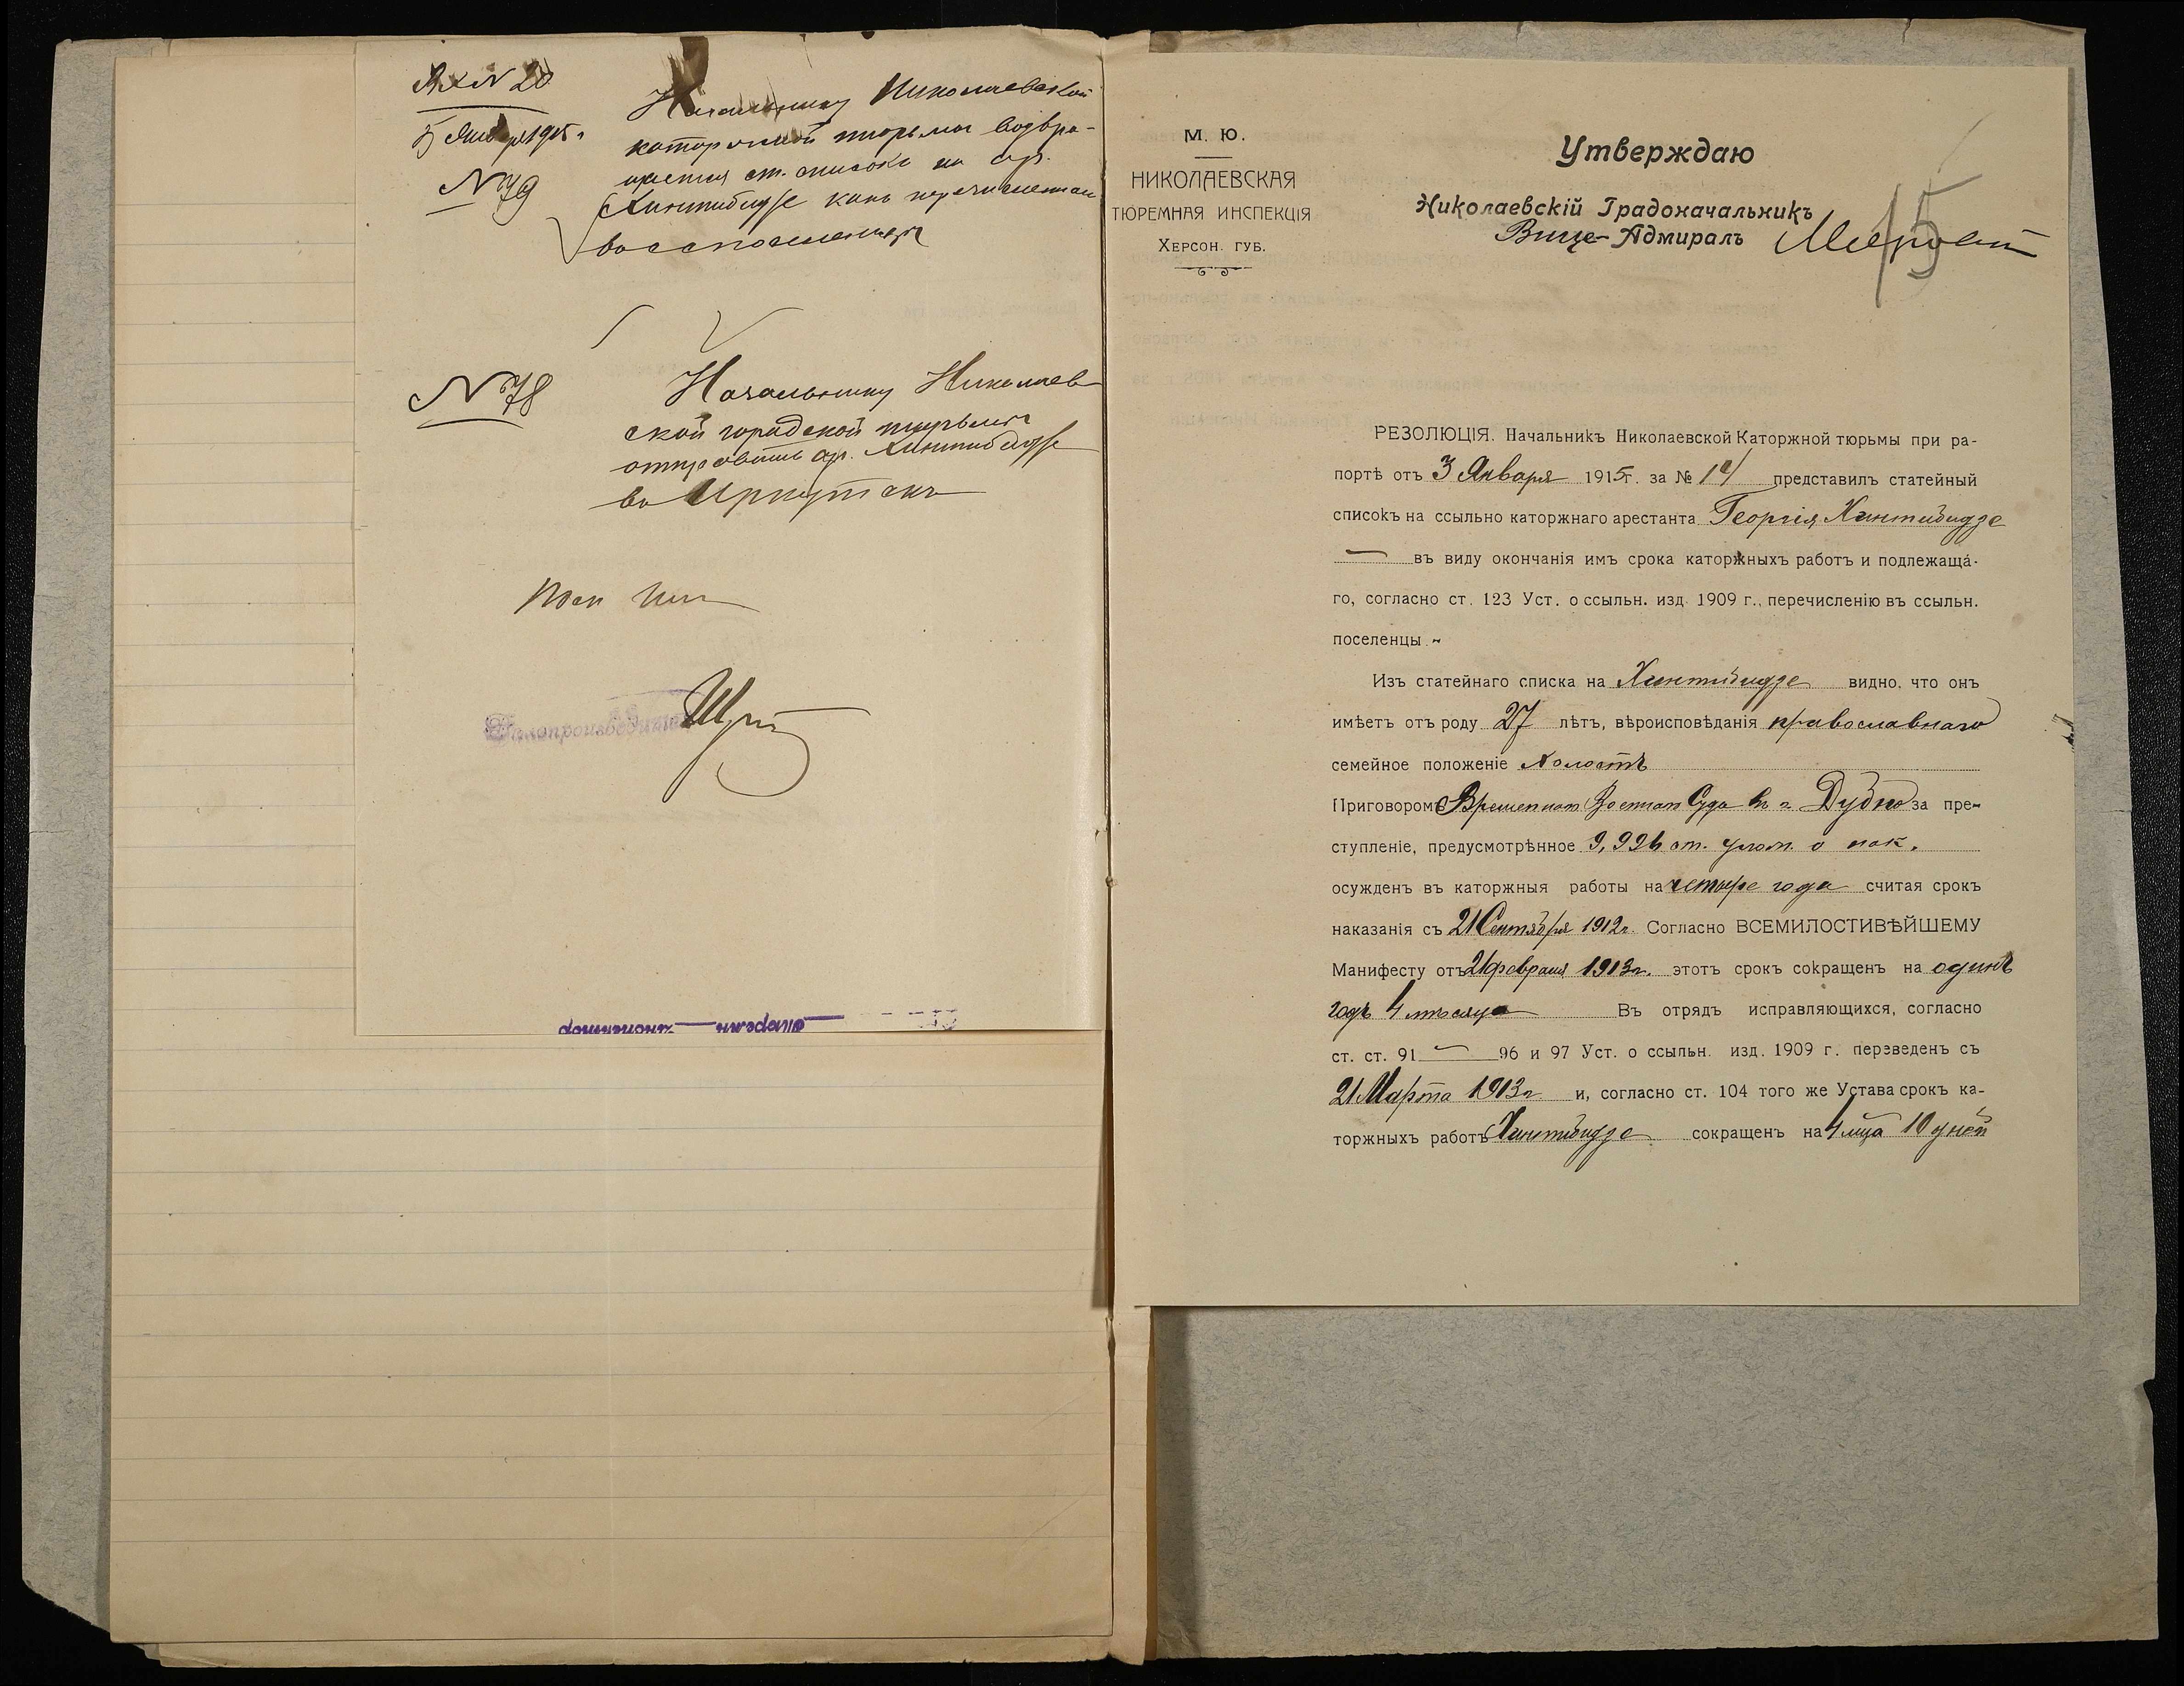 № 20
5 Января 1915 г.
№ 79
Начальнику Николаевской
каторжной тюрьмы возвра-
щается ст. списокъ на ар.
Хинтибидзе какъ перечисленнаго
въ ссыпоселенцы
№ 78
Начальнику Николаев
ской городской тюрьмы
отправить ар. Хинтибидзе
въ Иркутскъ
Делопроизводитель
М. Ю.
НИКОЛАЕВСКАЯ
ТЮРЕМНАЯ ИНСПЕКЦІЯ
ХЕРСОН. ГУБ.
Утверждаю
15
Николаевскій Градоначальникъ
Вице-Адмиралъ
РЕЗОЛЮЦІЯ. Начальникъ Николаевской Каторжной тюрьмы при ра-
портѣ отъ 3 Января 1915г. за № представилъ статейный
списокъ на ссыльно каторжнаго арестанта Георгія Хинтибидзе
въ виду окончанія имъ срока каторжныхъ работъ и подлежаща-
го, согласно ст. 123 Уст. о ссыльн. изд. 1909 г., перечисленію въ ссыльн.
поселенцы.~
Изъ статейнаго списка на Хинтибидзе видно, что онъ
имѣетъ отъ роду 27 лѣтъ, вѣроисповѣданія православнаго
семейное положеніе холостъ
Приговоромъ Временнаго Военнаго Суда въ г. Дубно за пре-
ступленіе, предусмотрѣнное 9, 926 ст. улож. о нак.
осужденъ въ каторжныя работы на четыре года считая срокъ
наказанія съ 21 Сентября 1912г. Согласно ВСЕМИЛОСТИВѢЙШЕМУ
Манифесту отъ 21 февраля 1913г. этотъ срокъ сокращенъ на одинъ
годъ 4 мѣсяца Въ отрядъ исправляющихся, согласно
ст. ст. 91 — 96 и 97 Уст. о ссыльн. изд. 1909 г. переведенъ съ
21 Марта 1913г и, согласно ст. 104 того же Устава срокъ ка-
торжныхъ работъ Хинтибидзе сокращенъ на 4 мца 10 дней